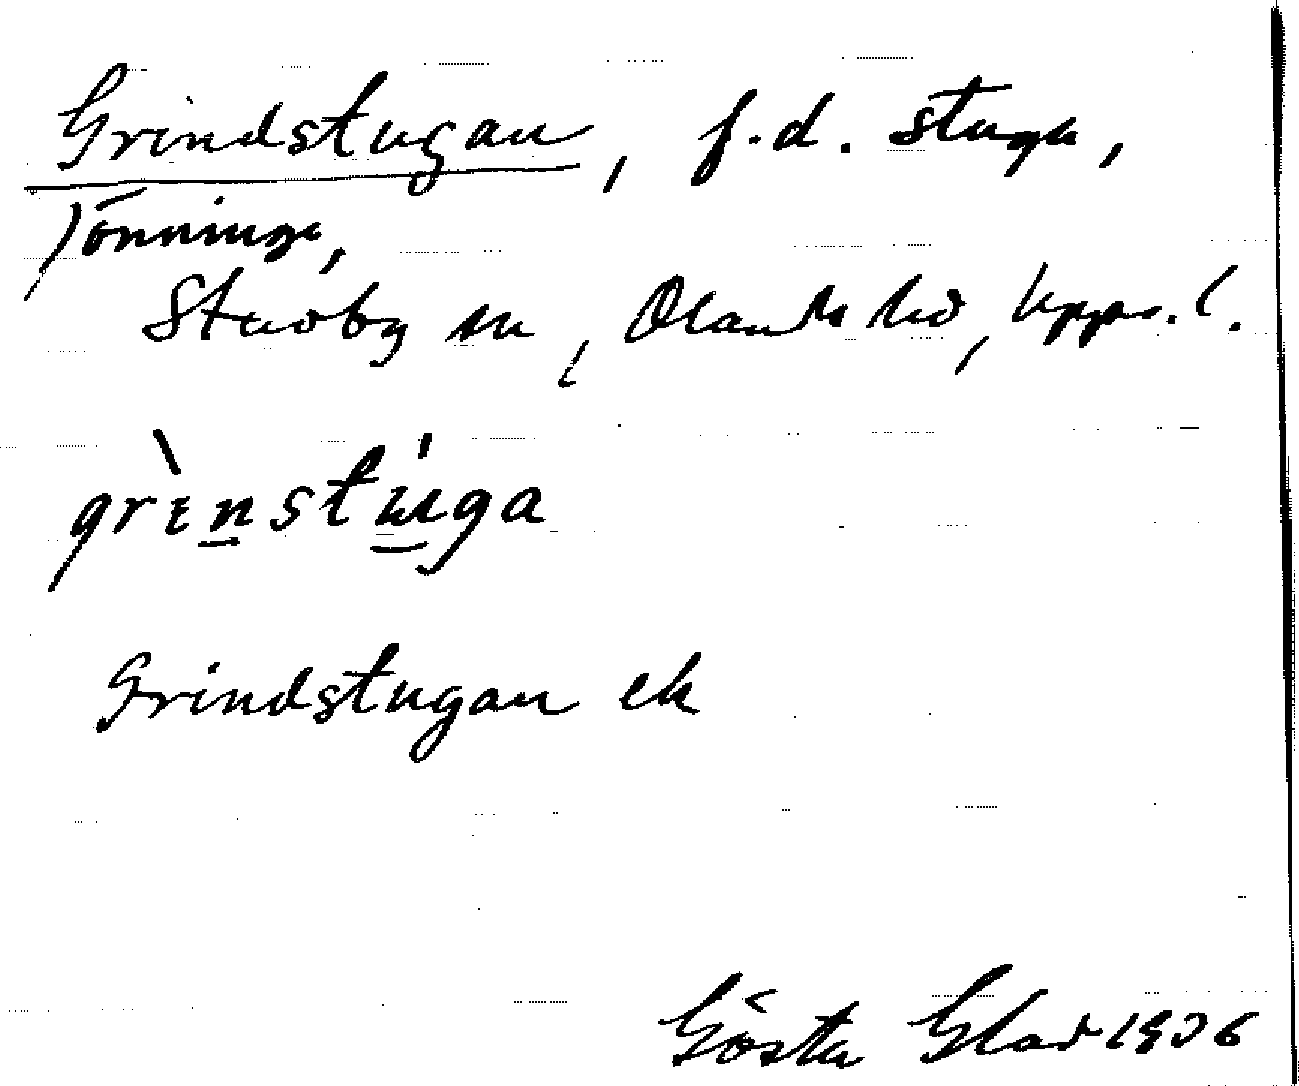 Grindstugan, f.d. stuga,
Jönninge,
Stavby sn, Olands hd, Upps. l.
grɪ̀nstu̇ga
Grindstugan ek
Gösta Glad 1936